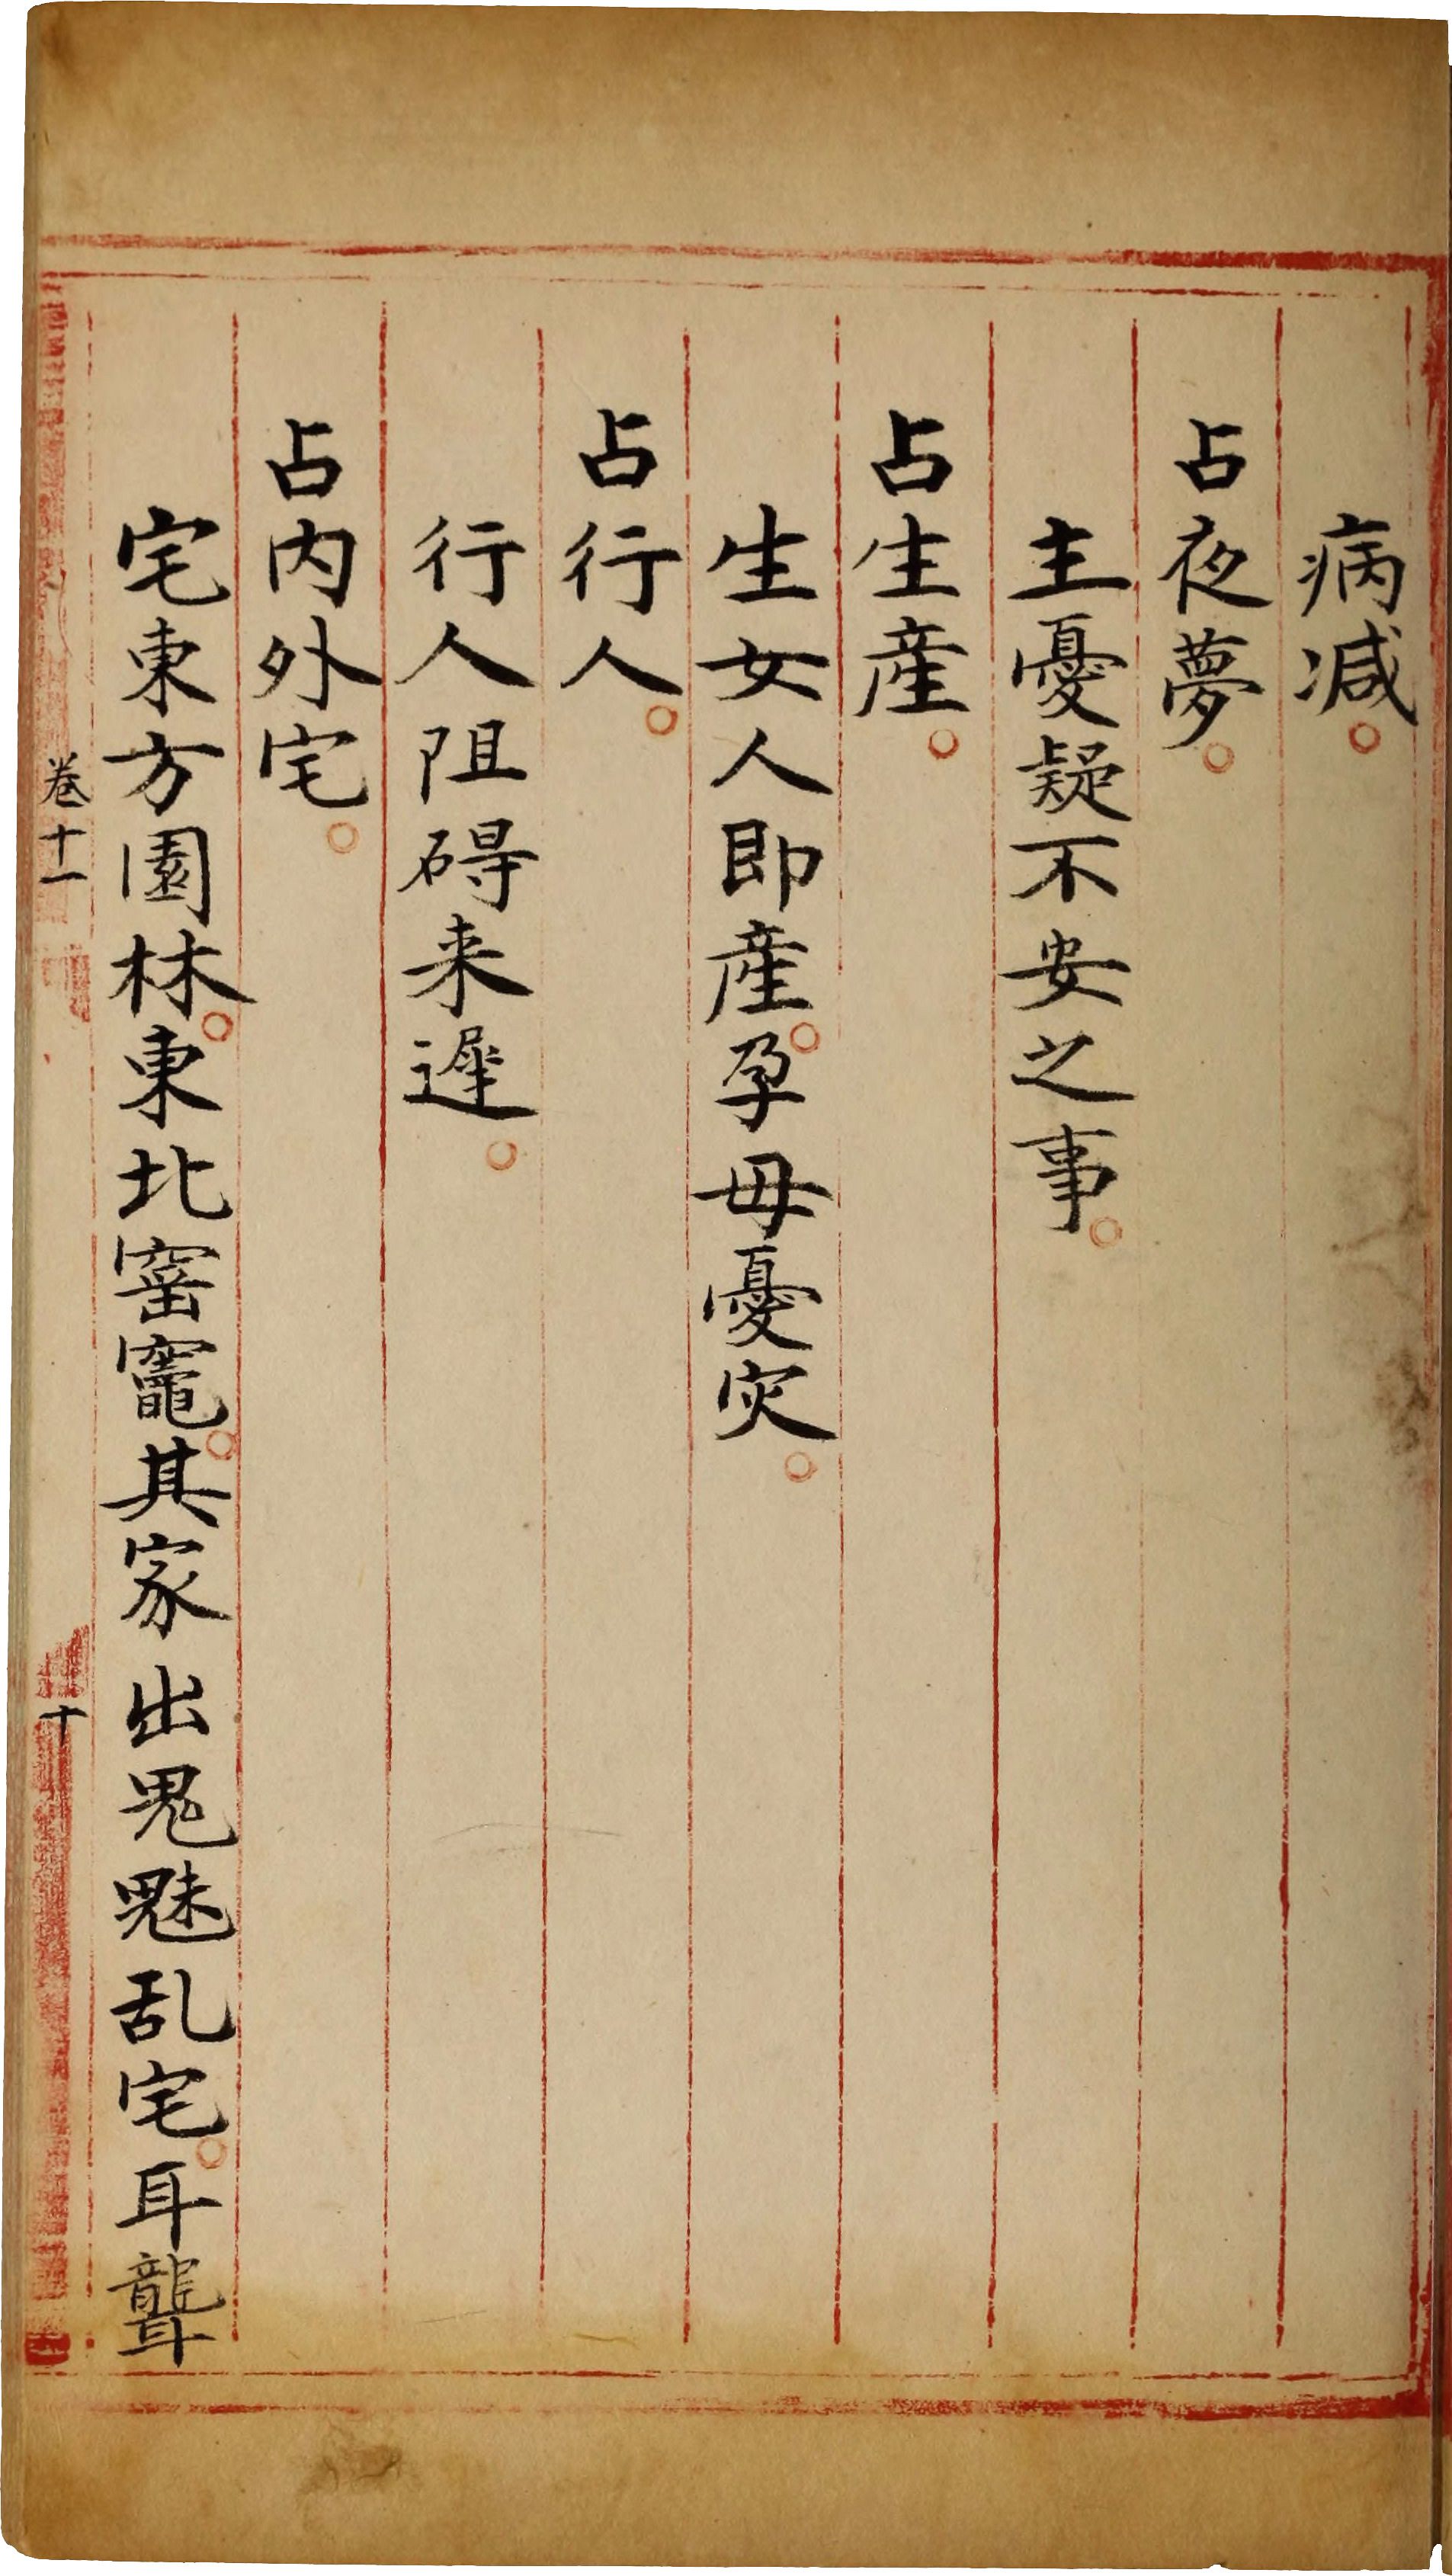 病减。
占夜夢。
主憂疑不安之事。
占生産。
生女人即産。孕母憂灾。
占行人。
行人阻碍来遲。
占内外宅。
宅東方園林。東北窑竈。其家出鬼魅乱宅。耳聾
卷十一
十